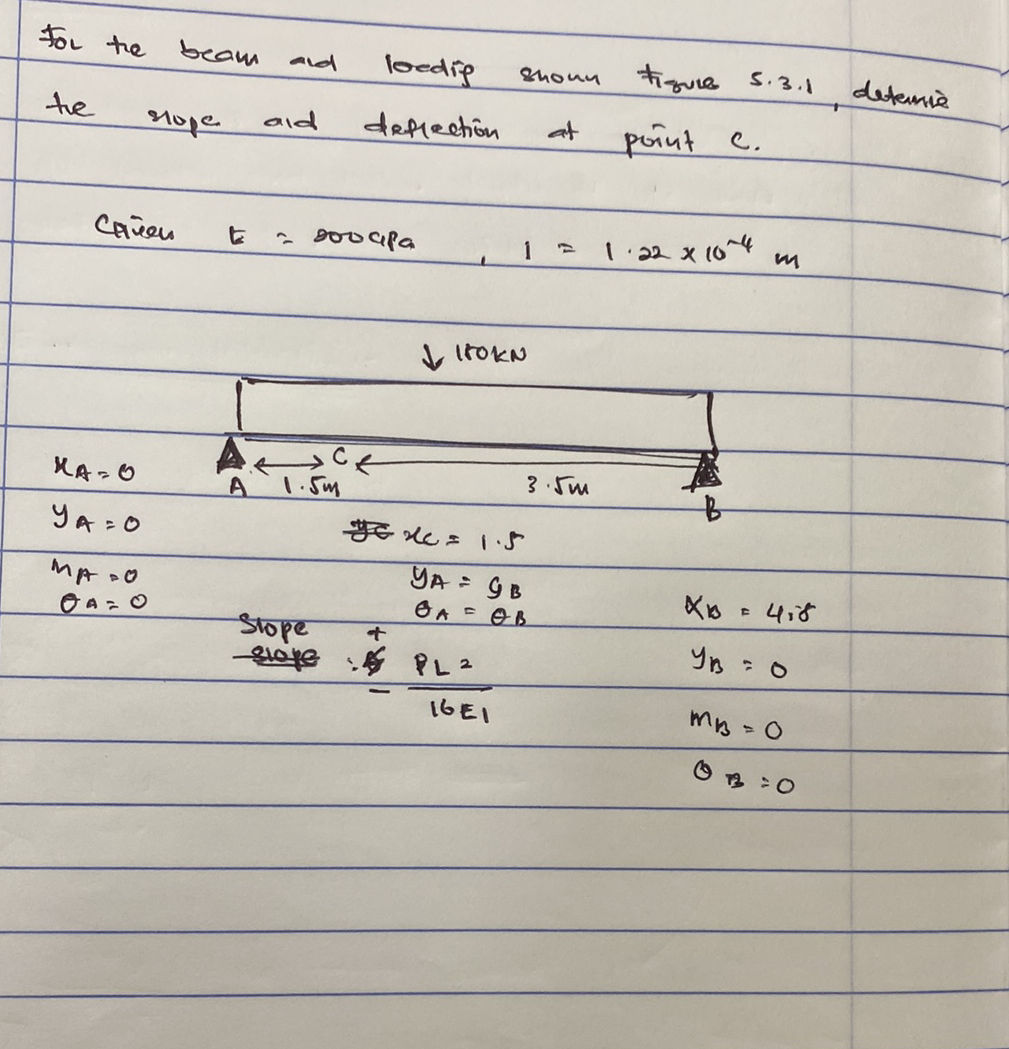 For the beam and loading shown figure 5.3.1, determie
the slope and deflection at point C.
Given E = 200 Gpa, I = 1.22 x 10⁻⁴ m
↓ 180KN
A 1.5m C 3.5m B
xA = 0
yA = 0
MA = 0
θA = 0
xC = 1.5
yA = yB
θA = θB
Slope + PL2
- 16EI
xB = 4.5
yB = 0
MB = 0
θB = 0